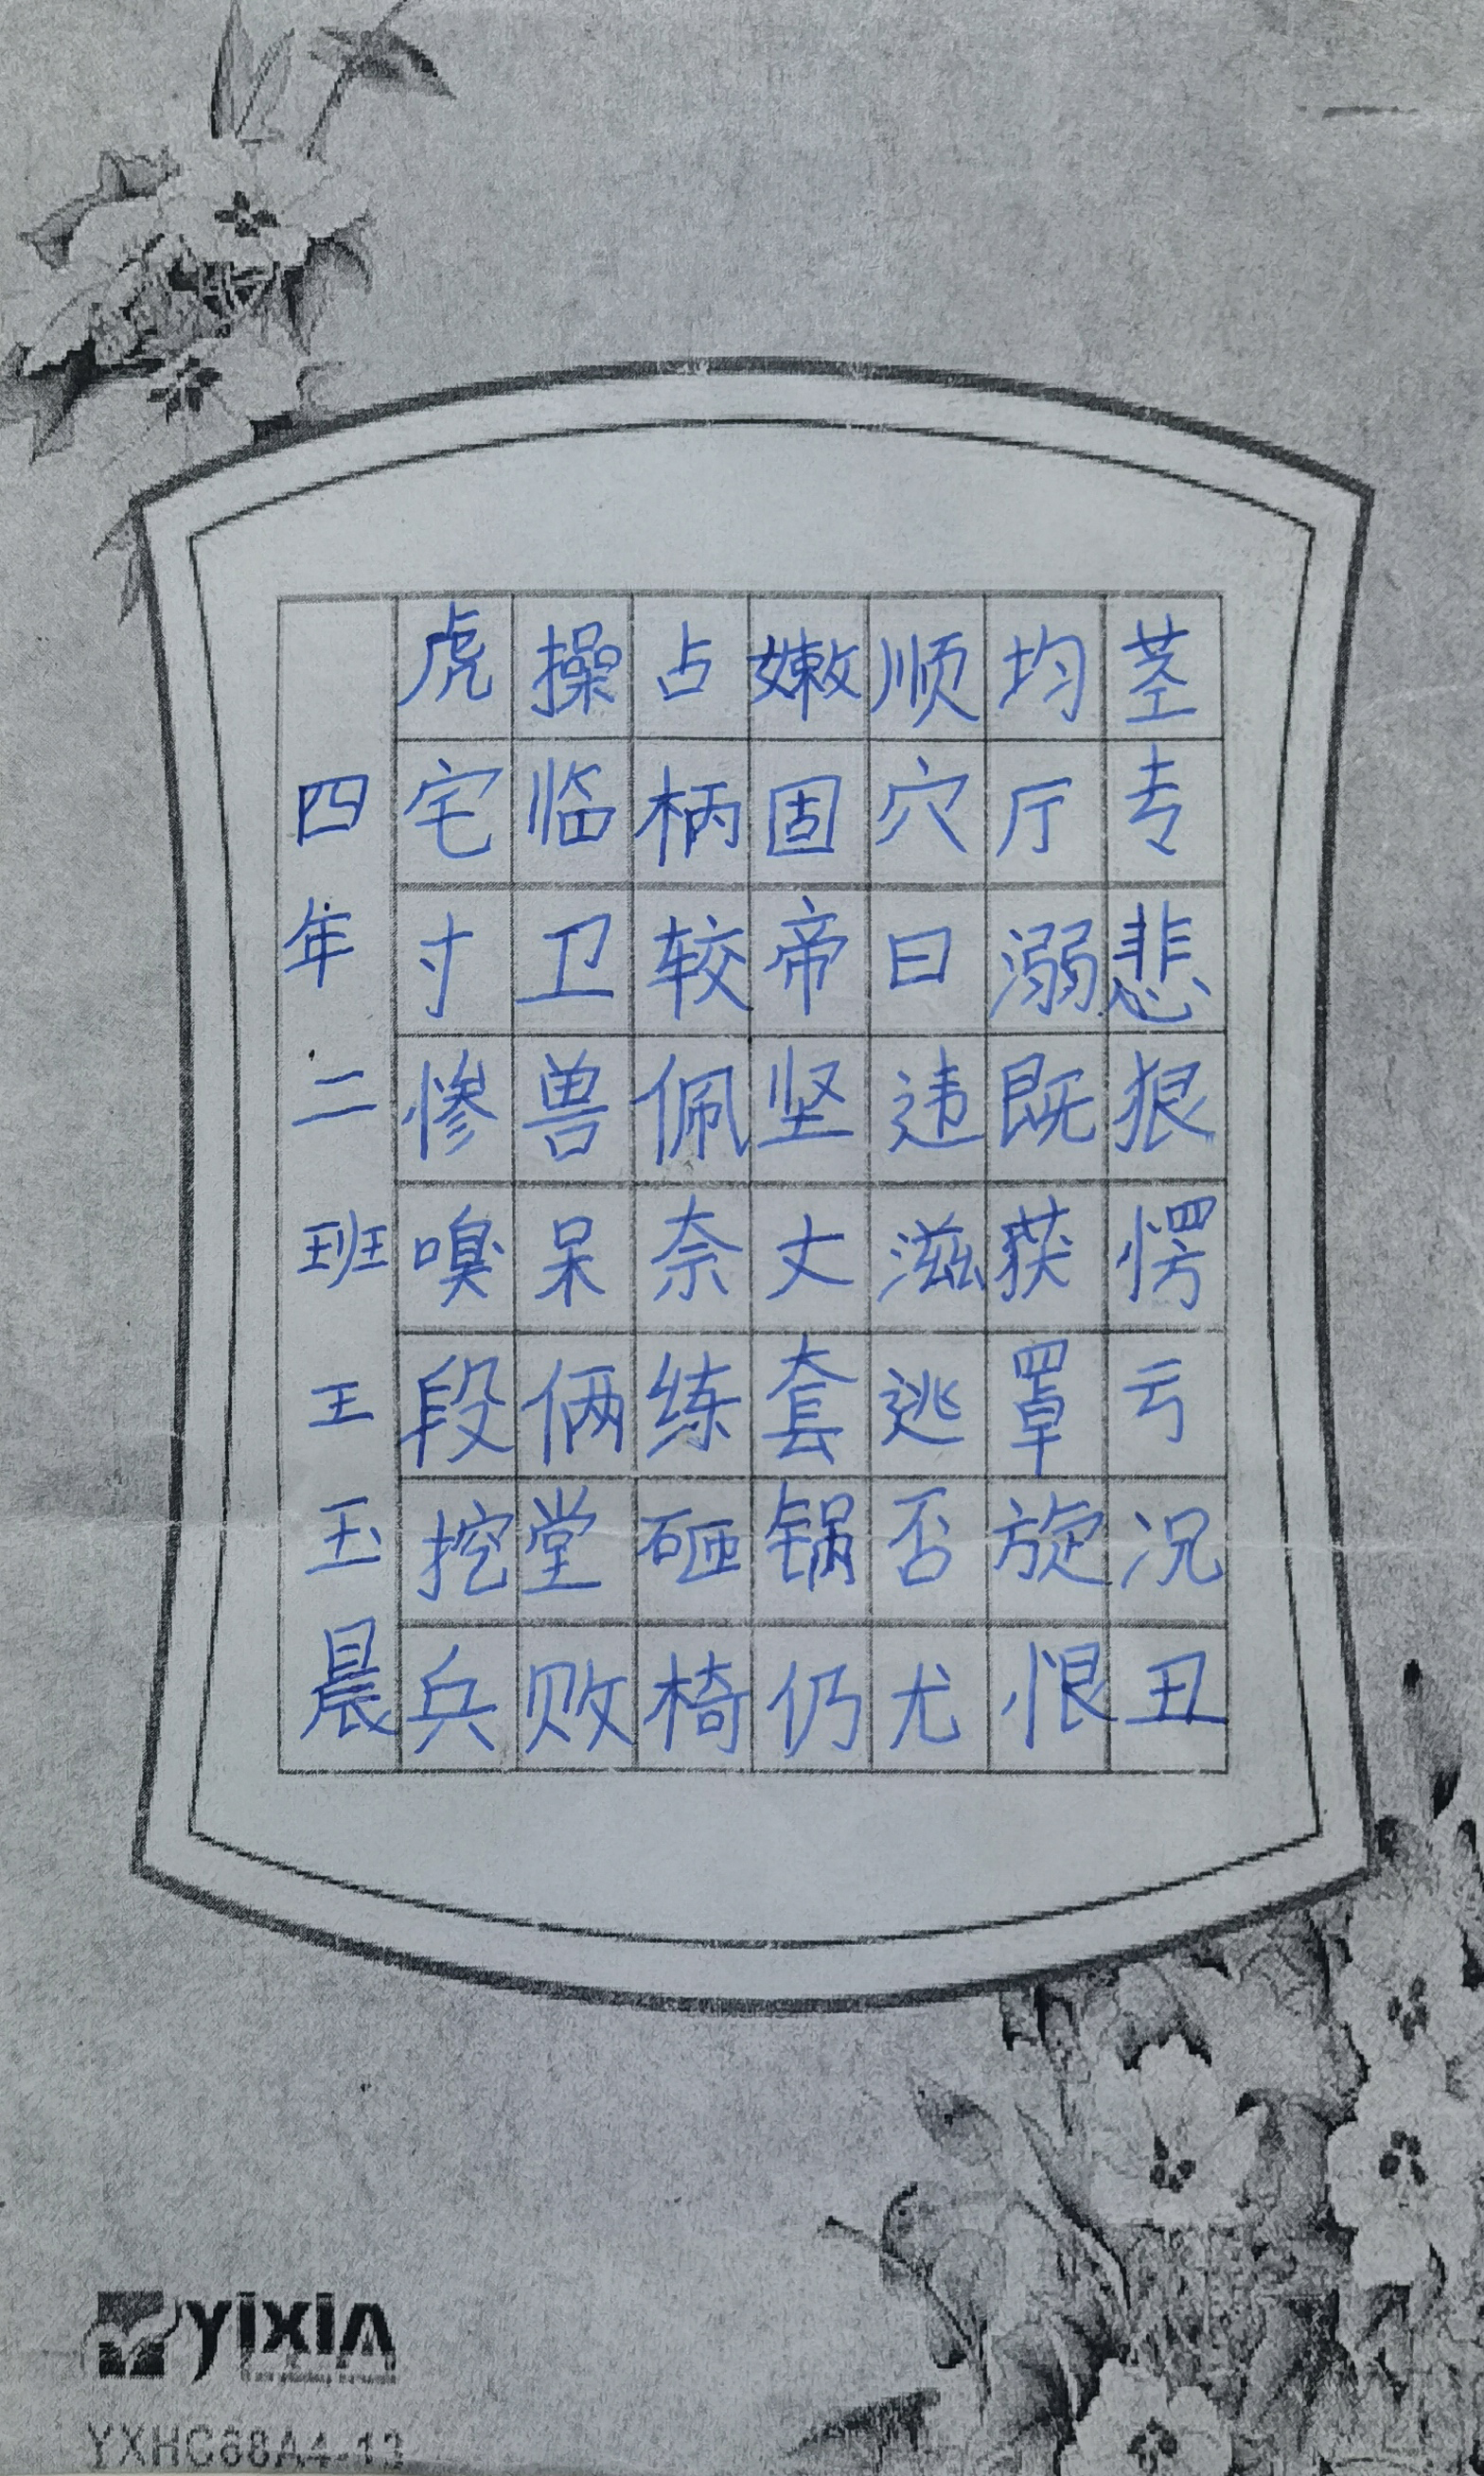 茎专悲狠愣亏况丑
均厅溺既获罩旋恨
顺穴曰违滋逃否尤
嫩固帝坚丈套锅仍
占柄较佩奈练砸椅
操临卫兽呆俩堂败
虎宅寸惨嗅段挖兵
四年二班王玉晨
yixin
YXHC68A4-13